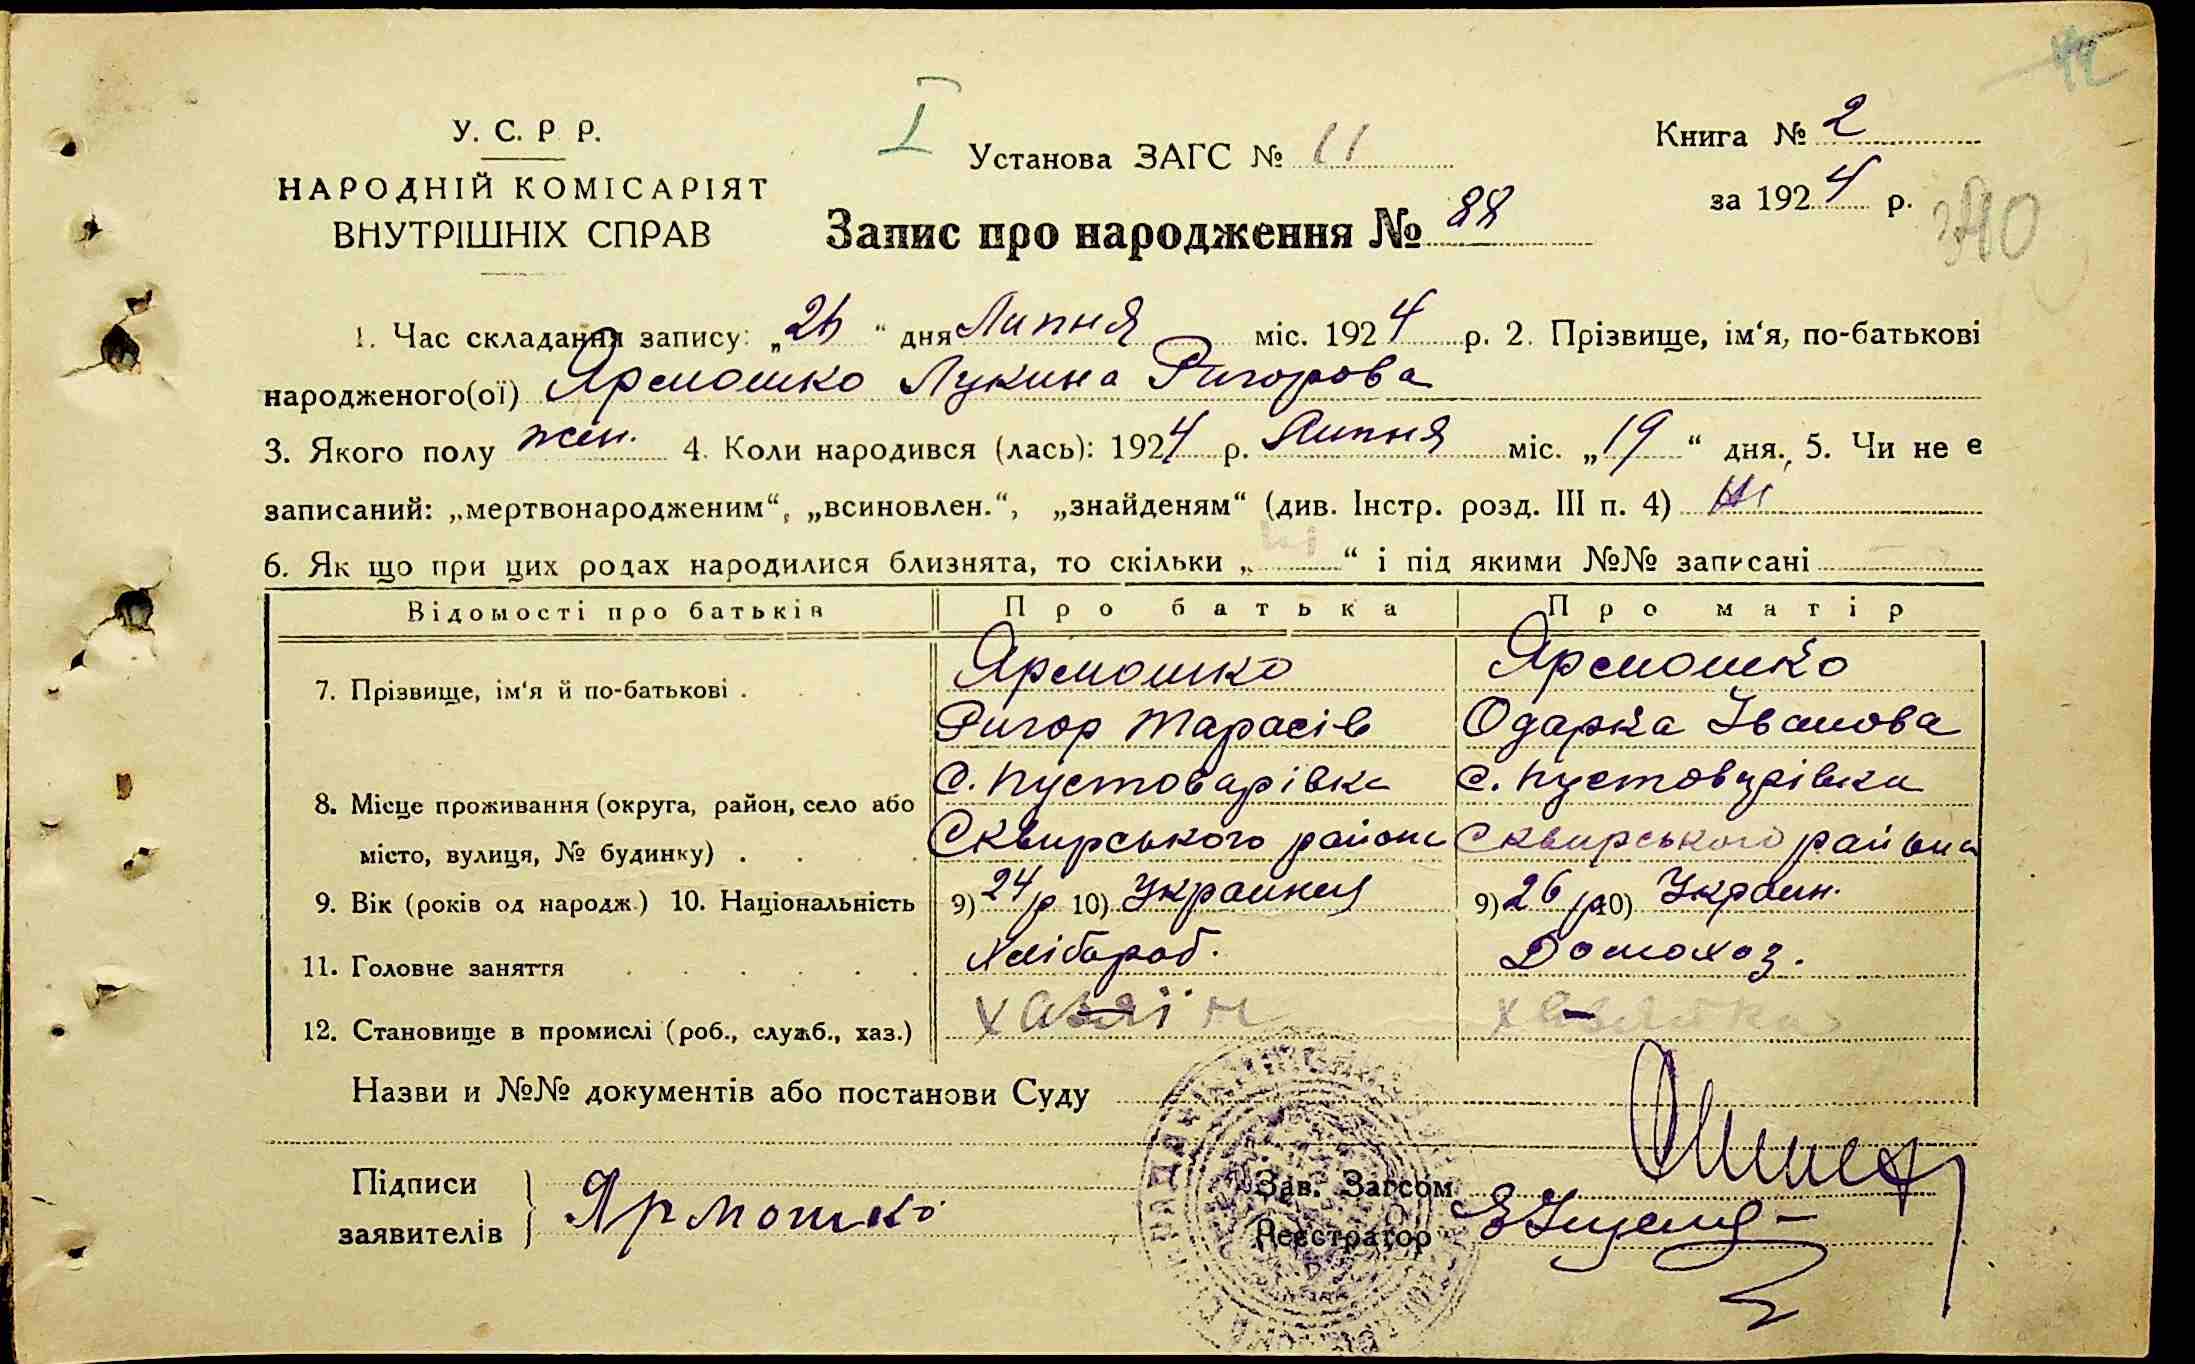 У. С. Р Р.
НАРОДНІЙ КОМІСАРІЯТ
ВНУТРІШНІХ СПРАВ
I
Установа ЗАГС № 11
Книга № 2
за 1924 р.
Запис про народження № 88
1. Час складання запису: „26“ дня Липня міс. 1924 р. 2. Прізвище, ім‘я, по-батькові
народженого(ої) Ярмошко Лукина Ригорова
3. Якого полу жен. 4. Коли народився (лась): 1924 р. Липня міс. „19“ дня. 5. Чи не є
записаний: „мертвонародженим“, „всиновлен.“, „знайденям“ (див. Інстр. розд. III п. 4) Ні
6. Як що при цих родах народилися близнята, то скільки „ні“ і під якими №№ записані
Відомості про батьків Про батька Про матір
7. Прізвище, ім‘я й по-батькові . Ярмошко Ярмошко
Ригор Тарасів Одарка Іванова
8. Місце проживання (округа, район, село або с. Пустоварівка с. Пустоварівка
місто, вулиця, № будинку) . Сквирського района Сквирського района
9. Вік (років од народж.) 10. Національність 9) 24 р 10) Украинец 9) 26 р 10) Украин.
11. Головне заняття Хлібороб. Домохоз.
12. Становище в промислі (роб., служб., хаз.) хазяїн хазяйка
Назви и №№ документів або постанови Суду
Підписи
заявителів Ярмошко
Зав. Загсом
Реєстратор